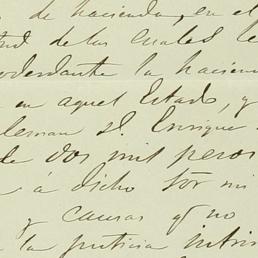 de hacienda, en el
tud de las cuales le
poderdante la hacien
en aquel Estado, y
leman D. Enrique
de dos mil pesos
á dicho Sor mi
y causas qe no
la justicia intrin